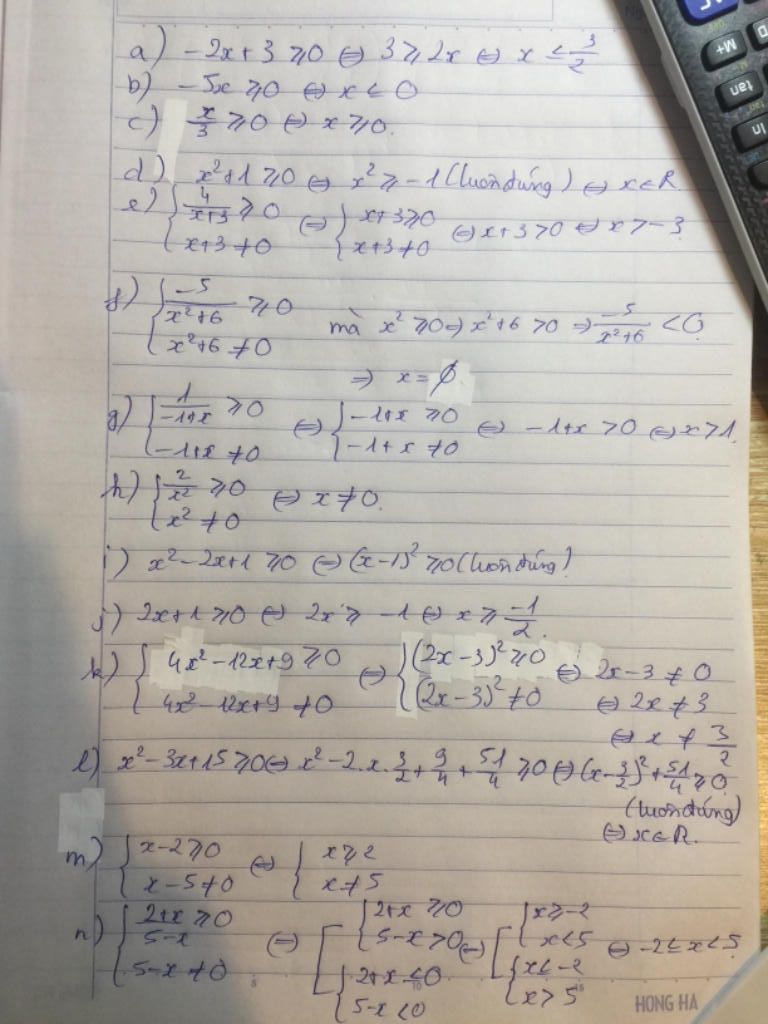 a) -2x+3 ≥0 ⇔ 3 ≥ 2x ⇔ x ≤ 3/2
b) -5x ≥0 ⇔ x ≤ 0
c) x/3 ≥0 ⇔ x ≥0.
d) x²+1 ≥0 ⇔ x² ≥ -1 (luôn đúng) ⇔ x∈R.
e) { 4/(x+3) ≥0 ⇔ { x+3≥0 ⇔ x+3 >0 ⇔ x > -3
x+3 ≠0 x+3≠0
f) { -5/(x²+6) ≥0 mà x² ≥0 ⇒ x²+6 >0 ⇒ -5/(x²+6) <0.
x²+6 ≠0
⇒ x = ∅
g) { 1/(-1+x) ≥0 ⇔ { -1+x ≥0 ⇔ -1+x >0 ⇔ x >1.
-1+x ≠0 -1+x ≠0
h) { 2/x² ≥0 ⇔ x ≠0.
x² ≠0
i) x²-2x+1 ≥0 ⇔ (x-1)² ≥0 (luôn đúng)
j) 2x+1 ≥0 ⇔ 2x ≥ -1 ⇔ x ≥ -1/2.
k) { 4x²-12x+9 ≥0 ⇔ { (2x-3)² ≥0 ⇔ 2x-3 ≠0
4x²-12x+9 ≠0 (2x-3)² ≠0 ⇔ 2x ≠3
⇔ x ≠ 3/2
l) x²-3x+15 ≥0 ⇔ x²-2.x.3/2+9/4+51/4 ≥0 ⇔ (x-3/2)²+51/4 ≥0.
(luôn đúng)
⇔ x∈R.
m) { x-2 ≥0 ⇔ { x≥2
x-5 ≠0 x≠5
n) { (2+x)/(5-x) ≥0 ⇔ [ { 2+x ≥0 ⇔ [ { x≥-2
5-x >0 x<5 ⇔ -2 ≤ x <5.
5-x ≠0 { 2+x ≤0 { x≤-2
5-x <0 x>5
HONG HA
M+
tan
ln